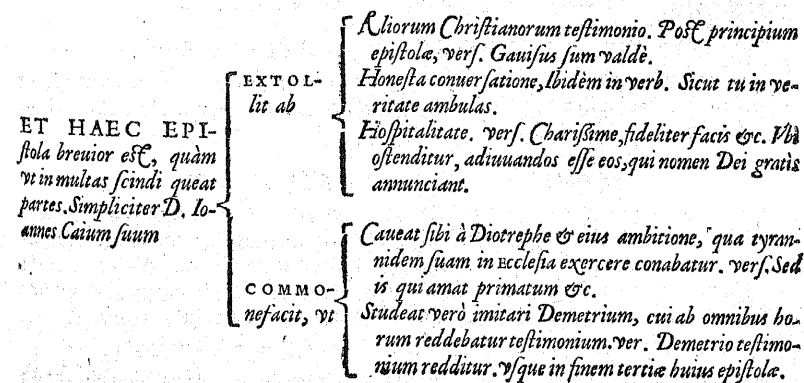 ET HAEC EPI-
ſtola breuior eſt, quàm
vt in multas ſcindi queat
partes. Simpliciter D. Io-
annes Caium ſuum
EXTOL-
lit ab
Aliorum Chriſtianorum teſtimonio. Poſt principium
epiſtolæ, verſ. Gauiſus ſum valdè.
Honeſta conuerſatione, Ibidèm in verb. Sicut tu in ve-
ritate ambulas.
Hoſpitalitate. verſ. Chariſsime, fideliter facis &c. Vbi
oſtenditur, adiuuandos eſſe eos, qui nomen Dei gratis
annunciant.
COMMO-
nefacit, vt
Caueat ſibi à Diotrephe & eius ambitione, qua tyran-
nidem ſuam in Eccleſia exercere conabatur. verſ. Sed
is qui amat primatum &c.
Studeat verò imitari Demetrium, cui ab omnibus bo-
rum reddebatur teſtimonium. ver. Demetrio teſtimo-
nium redditur. vſque in finem tertiæ huius epiſtolæ.